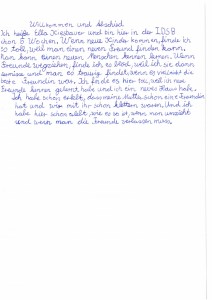 Willkommen und Abschied
Ich heiße Ella und bin hier in der IDSB
schon 5 Wochen. Wenn neue Kinder kommen, finde ich
so toll, weil man einen neuen Freund finden kann.
Man kann einen neuen Menschen kennen lernen. Wenn
Freunde wegziehen, finde ich es blöd, weil ich sie dann
vermisse und man so traurig findet, wenn es vielleicht die
beste Freundin war. Ich finde es hier toll, weil ich neue
Freunde kennen gelernt habe und ich ein neues Haus habe.
Ich habe schon erlebt, dass meine Mutter schon eine Freundin
hat und wir mit ihr schon klettern waren. Und ich
habe hier schon erlebt, wie es so ist, wenn man umzieht
und wenn man die Freunde verlassen muss.